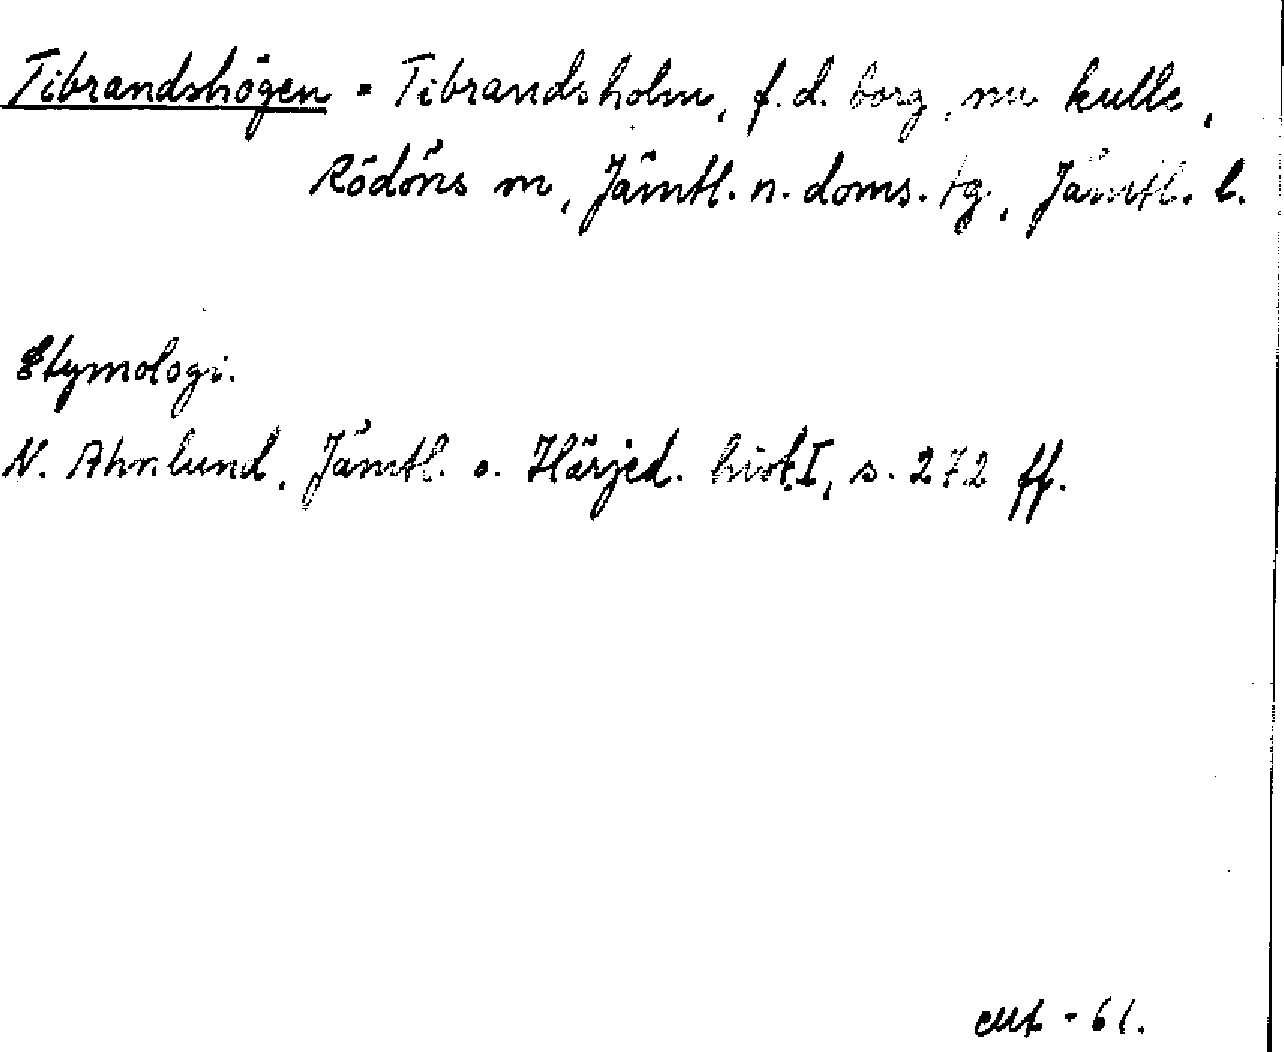 Tibrandshögen = Tibrandsholm, f.d. borg, nu kulle,
Rödöns sn, Jämtl. n. doms. tg, Jämtl. l.
Etymologi.
N. Ahnlund, Jämtl. o. Härjed. hist. I, s. 272 ff.
-61.